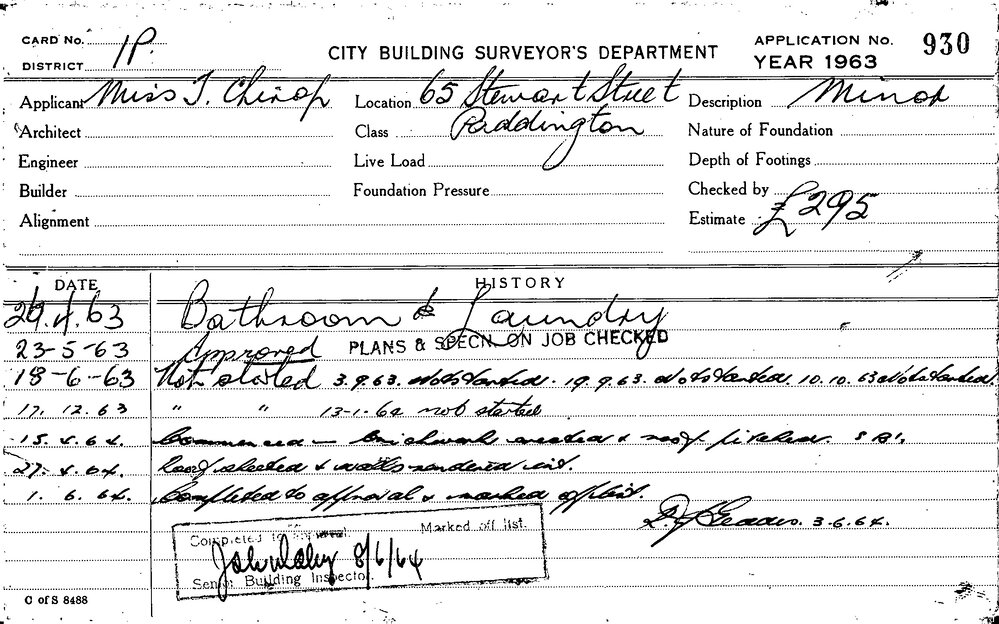 CARD No. 1P. CITY BUILDING SURVEYOR'S DEPARTMENT APPLICATION No. 930
DISTRICT YEAR 1963
Applicant Miss J. Location 65 Stewart Street Description Minor
Architect Class Paddington Nature of Foundation
Engineer Live Load Depth of Footings
Builder Foundation Pressure Checked by
Alignment Estimate £295
DATE HISTORY
29.4.63 Bathroom & Laundry
23-5-63 Approved PLANS & SPECN. ON JOB CHECKED
18-6-63 Not started 3.9.63. Not started. 19.9.63. Not started. 10.10.63 Not started.
17.12.63 " " 13-1-64 not started
15.4.64. Commenced — brickwork erected & roof
27.4.64. Roof sheeted & walls rendered int.
1.6.64. Completed to approval & marked off list.
3.6.64.
Completed to approval. Marked off list.
8/6/64
Senior Building Inspector.
C of S 8488